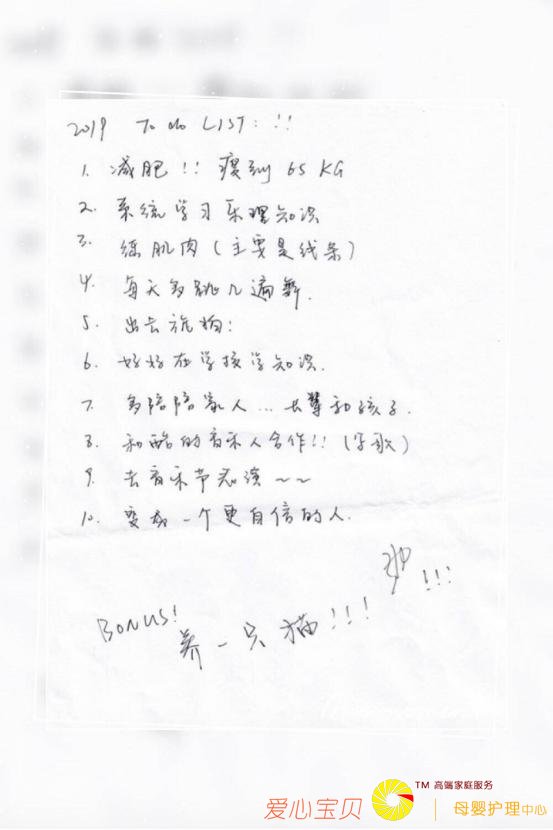 2019 To do LIST: !!
1. 减肥!! 瘦到 65 KG
2. 系统学习乐理知识
3. 练肌肉(主要是线条)
4. 每天多跳几遍舞.
5. 出去旅拍:
6. 好好在学校学知识.
7. 多陪陪家人...长辈和孩子.
8. 和酷的音乐人合作!! (写歌)
9. 去音乐节表演~~
10. 变成一个更自信的人.
!!!
BONUS!
养一只猫!!!
TM 高端家庭服务
爱心宝贝 母婴护理中心